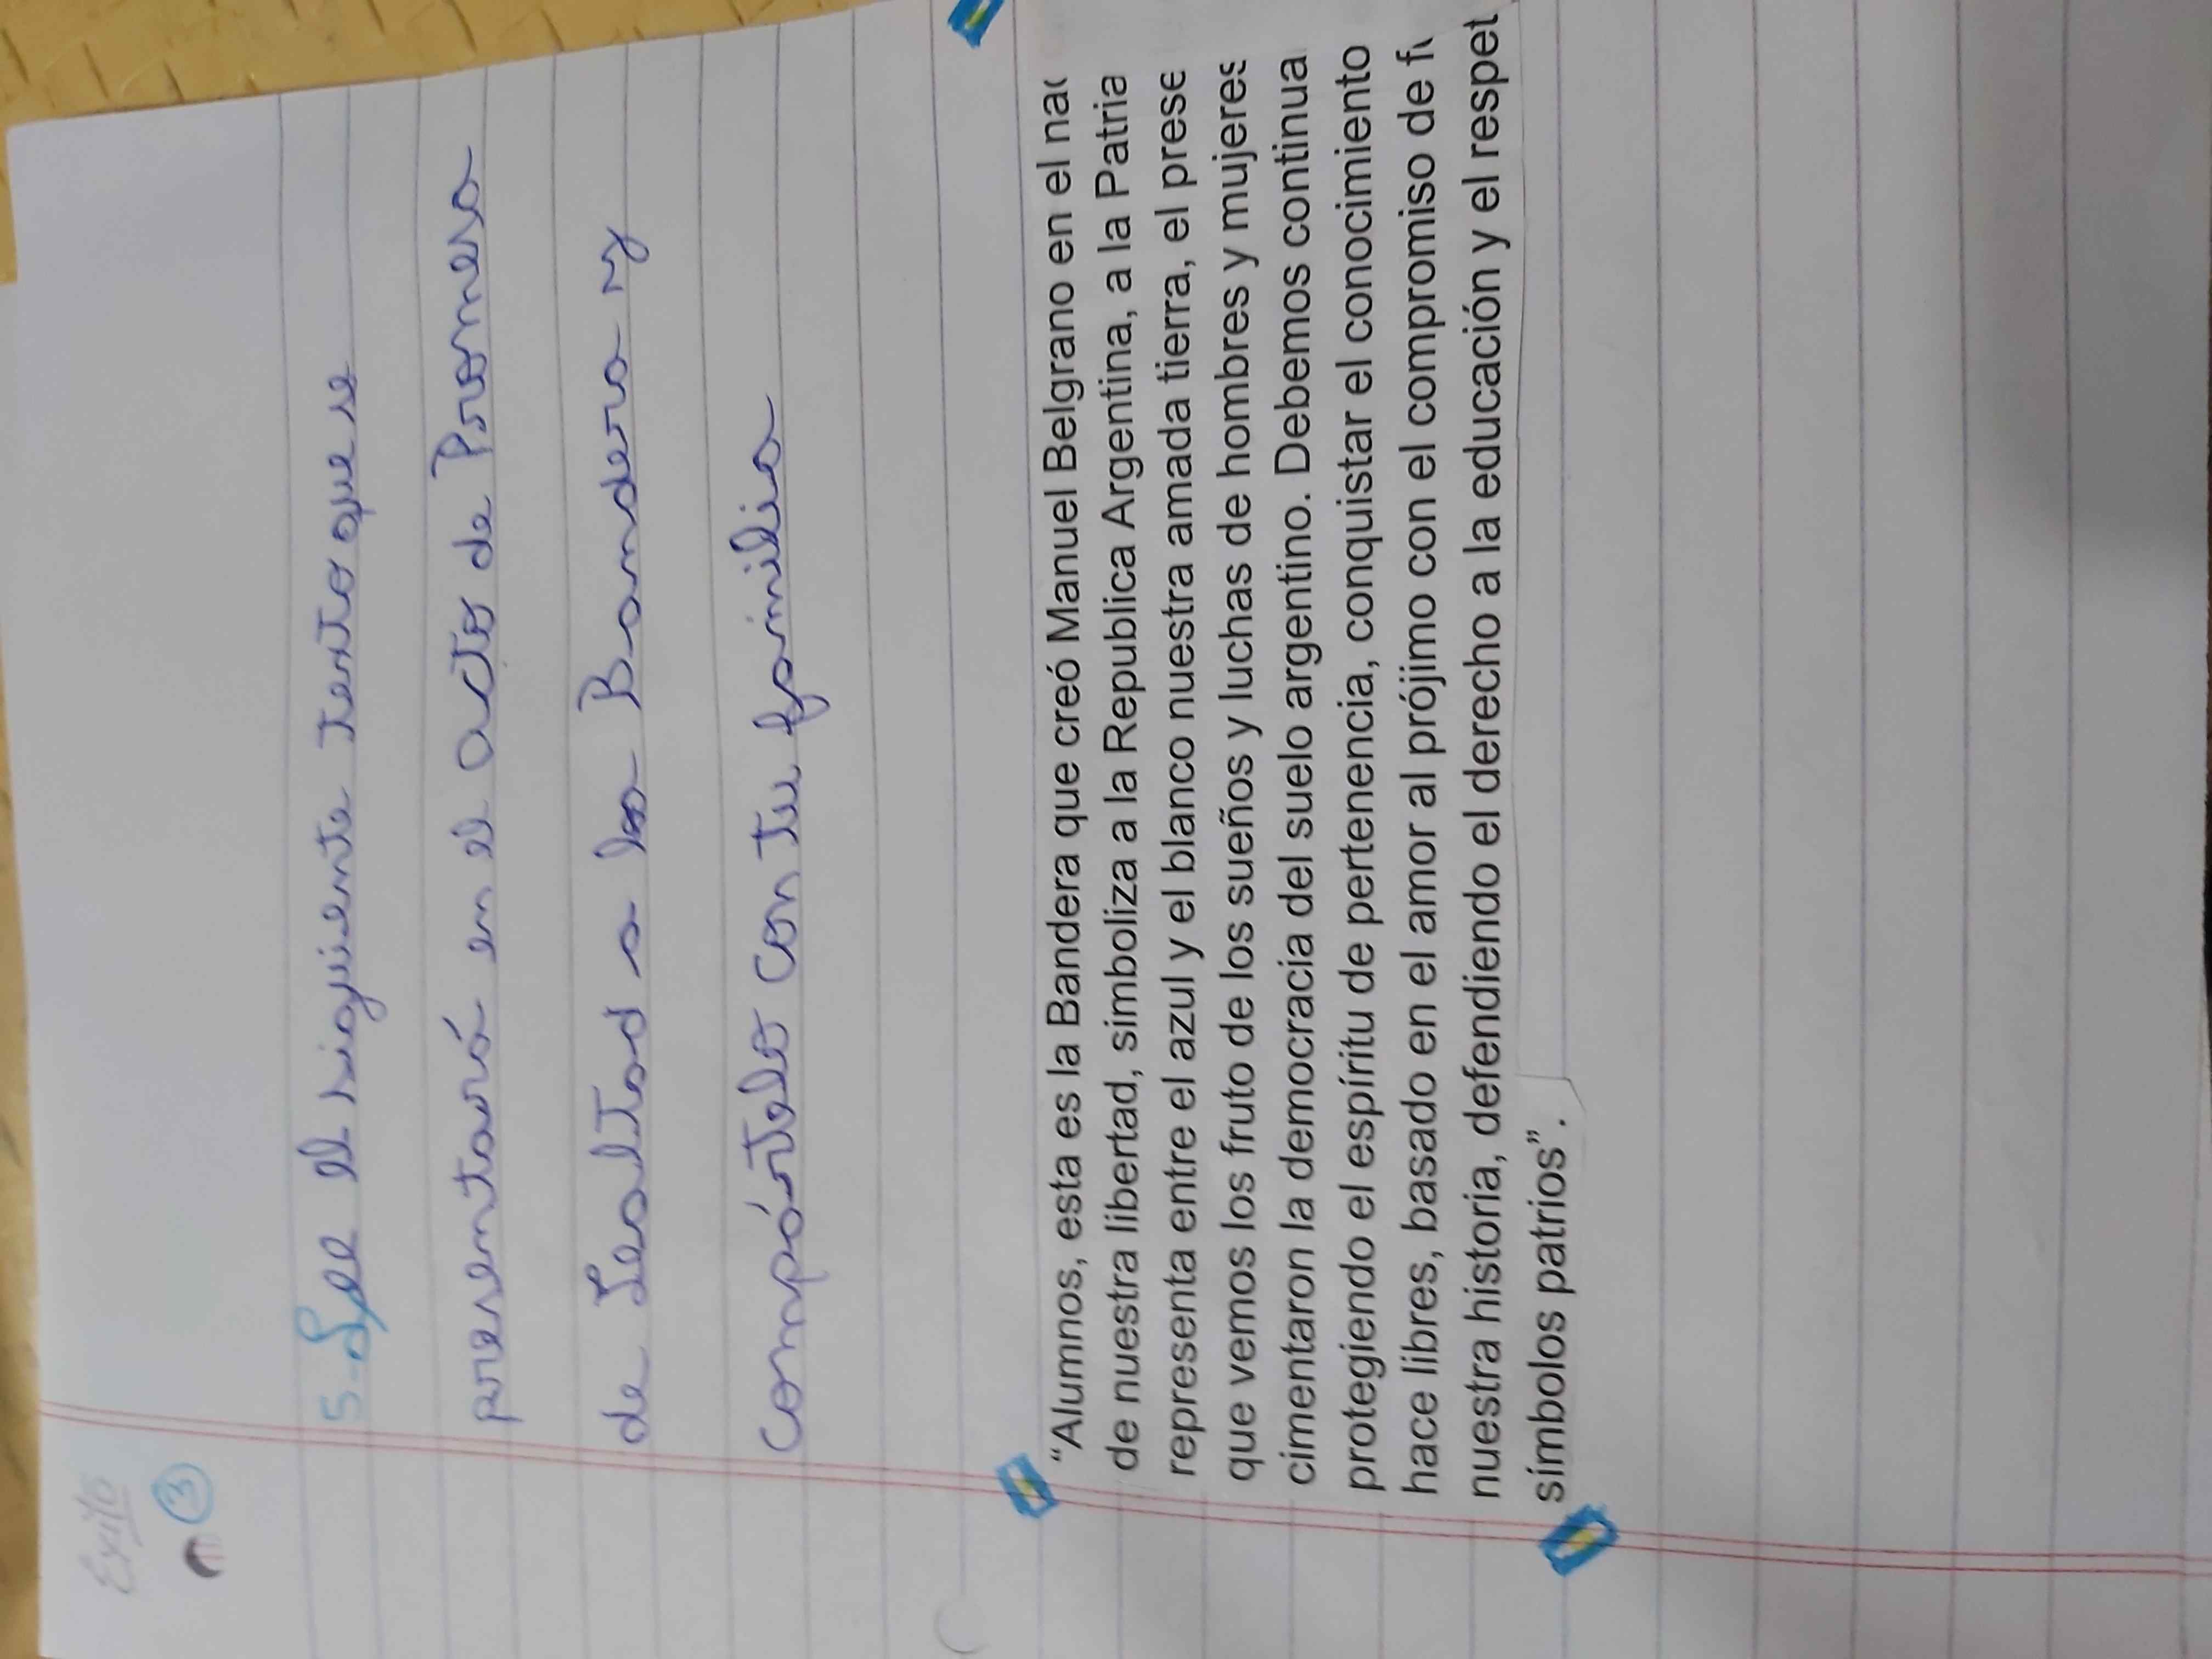 Exito
3
5-Lee el siguiente texto que se
presentará en el acto de Promesa
de Lealtad a la Bandera y
compártelo con tu familia
"Alumnos, esta es la Bandera que creó Manuel Belgrano en el
de nuestra libertad, simboliza a la Republica Argentina, a la Patria
representa entre el azul y el blanco nuestra amada tierra, el
que vemos los fruto de los sueños y luchas de hombres y mujeres
cimentaron la democracia del suelo argentino. Debemos
protegiendo el espíritu de pertenencia, conquistar el conocimiento
hace libres, basado en el amor al prójimo con el compromiso de
nuestra historia, defendiendo el derecho a la educación y el
símbolos patrios".